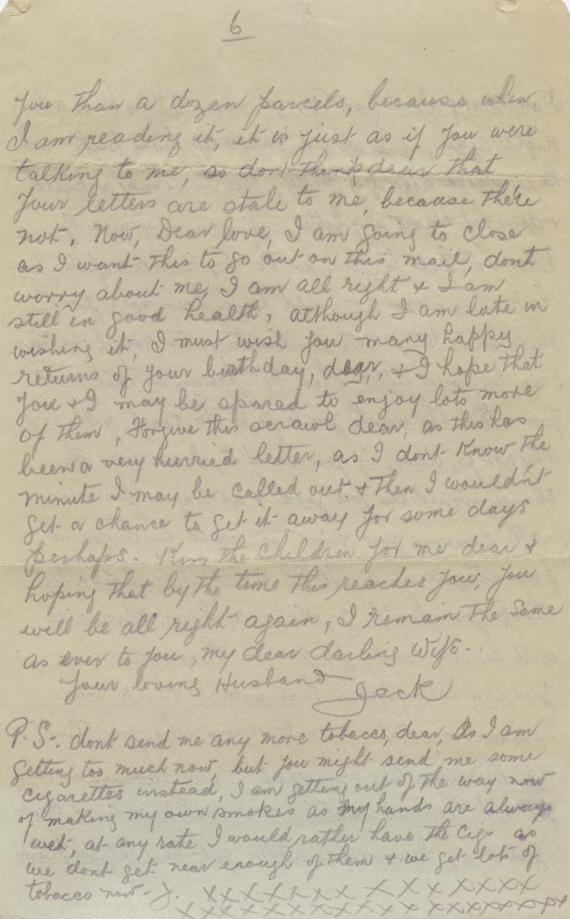 6
you than a dozen parcels, because when
I am reading it, it is just as if you were
talking to me, so dont think dear that
your letters are stale to me, because there
not. Now, Dear love, I am going to close
as I want this to go out on this mail, dont
worry about me, I am all right & I am
still in good health, athough I am late in
wishing it, I must wish you many happy
returns of your birthday, dear, & I hope that
you & I may be spared to enjoy lots more
of them, Forgive this scrawl dear, as this has
been a very hurried letter, as I dont know the
minute I may be called out & then I wouldn't
get a chance to get it away for some days
perhaps. Kiss the children for me dear &
hoping that by the time this reaches you, you
will be all right again, I remain the same
as ever to you, my dear darling Wife.
Your loving Husband
Jack
P.S. dont send me any more tobacco, dear, As I am
getting too much now, but you might send me some
cigarettes instead, I am getting out of the way now
of making my own smokes as my hands are always
wet, at any rate I would rather have the cigs as
we dont get near enough of them & we get lots of
tobacco now - J. XXXXXXXXXXXXXXX
XXXXXXXXXXXXXXXXXXX